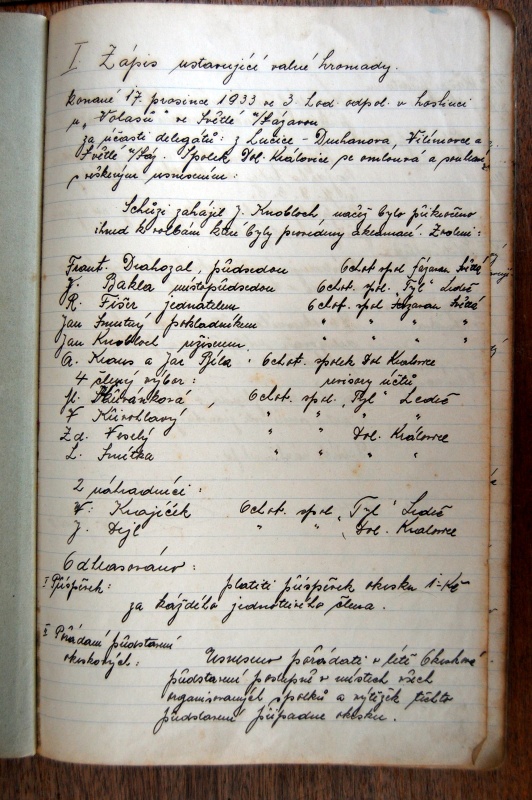 I. Zápis ustavující valné hromady.
Konané 17. prosince 1933 ve 3. hod. odpol. v hostinci
u „Volašů" ve Světlé n/Sázavou
za účasti delegátů: z Lučice - Druhanova, Vilémovce a
Světlé n/Sáz. Spolek Dol. Kralovice se omlouvá a souhlasí
s veškerým usnesením:
Schůzi zahájil J. Knobloch, načež bylo přikročeno
ihned k volbám které byly provedeny aklamací. Zvoleni:
Frant. Drahozal, předsedou Ochot. spol. Sázavan Světlá
J. Bakla místopředsedou Ochot. spol. „Tyl" Ledeč
R. Fišer jednatelem Ochot. spol. Sázavan Světlá
Jan Smutný pokladníkem " " " "
Jan Knobloch režisérem " " " "
A. Kraus a Jar. Bíla: Ochot. spolek Dol Kralovice
4 členný výbor: revisory účtů
Ochot. spol. „Tyl" Ledeč
V Křivohlavý " " " "
Zd. Veselý " " Dol. Kralovice
L. Smítka " " " "
2 náhradníci:
V. Krajíček Ochot. spol „Tyl" Ledeč
J. Dejl " " Dol. Kralovice
Odhlasováno:
I Příspěvek: platiti příspěvek okrsku 1.- Kč
za každého jednotlivého člena.
II Pořádání představení
okrskových: Usneseno pořádati v létě Okrskové
představení postupně v místech všech
organisovaných spolků a výtěžek těchto
představení připadne okrsku.